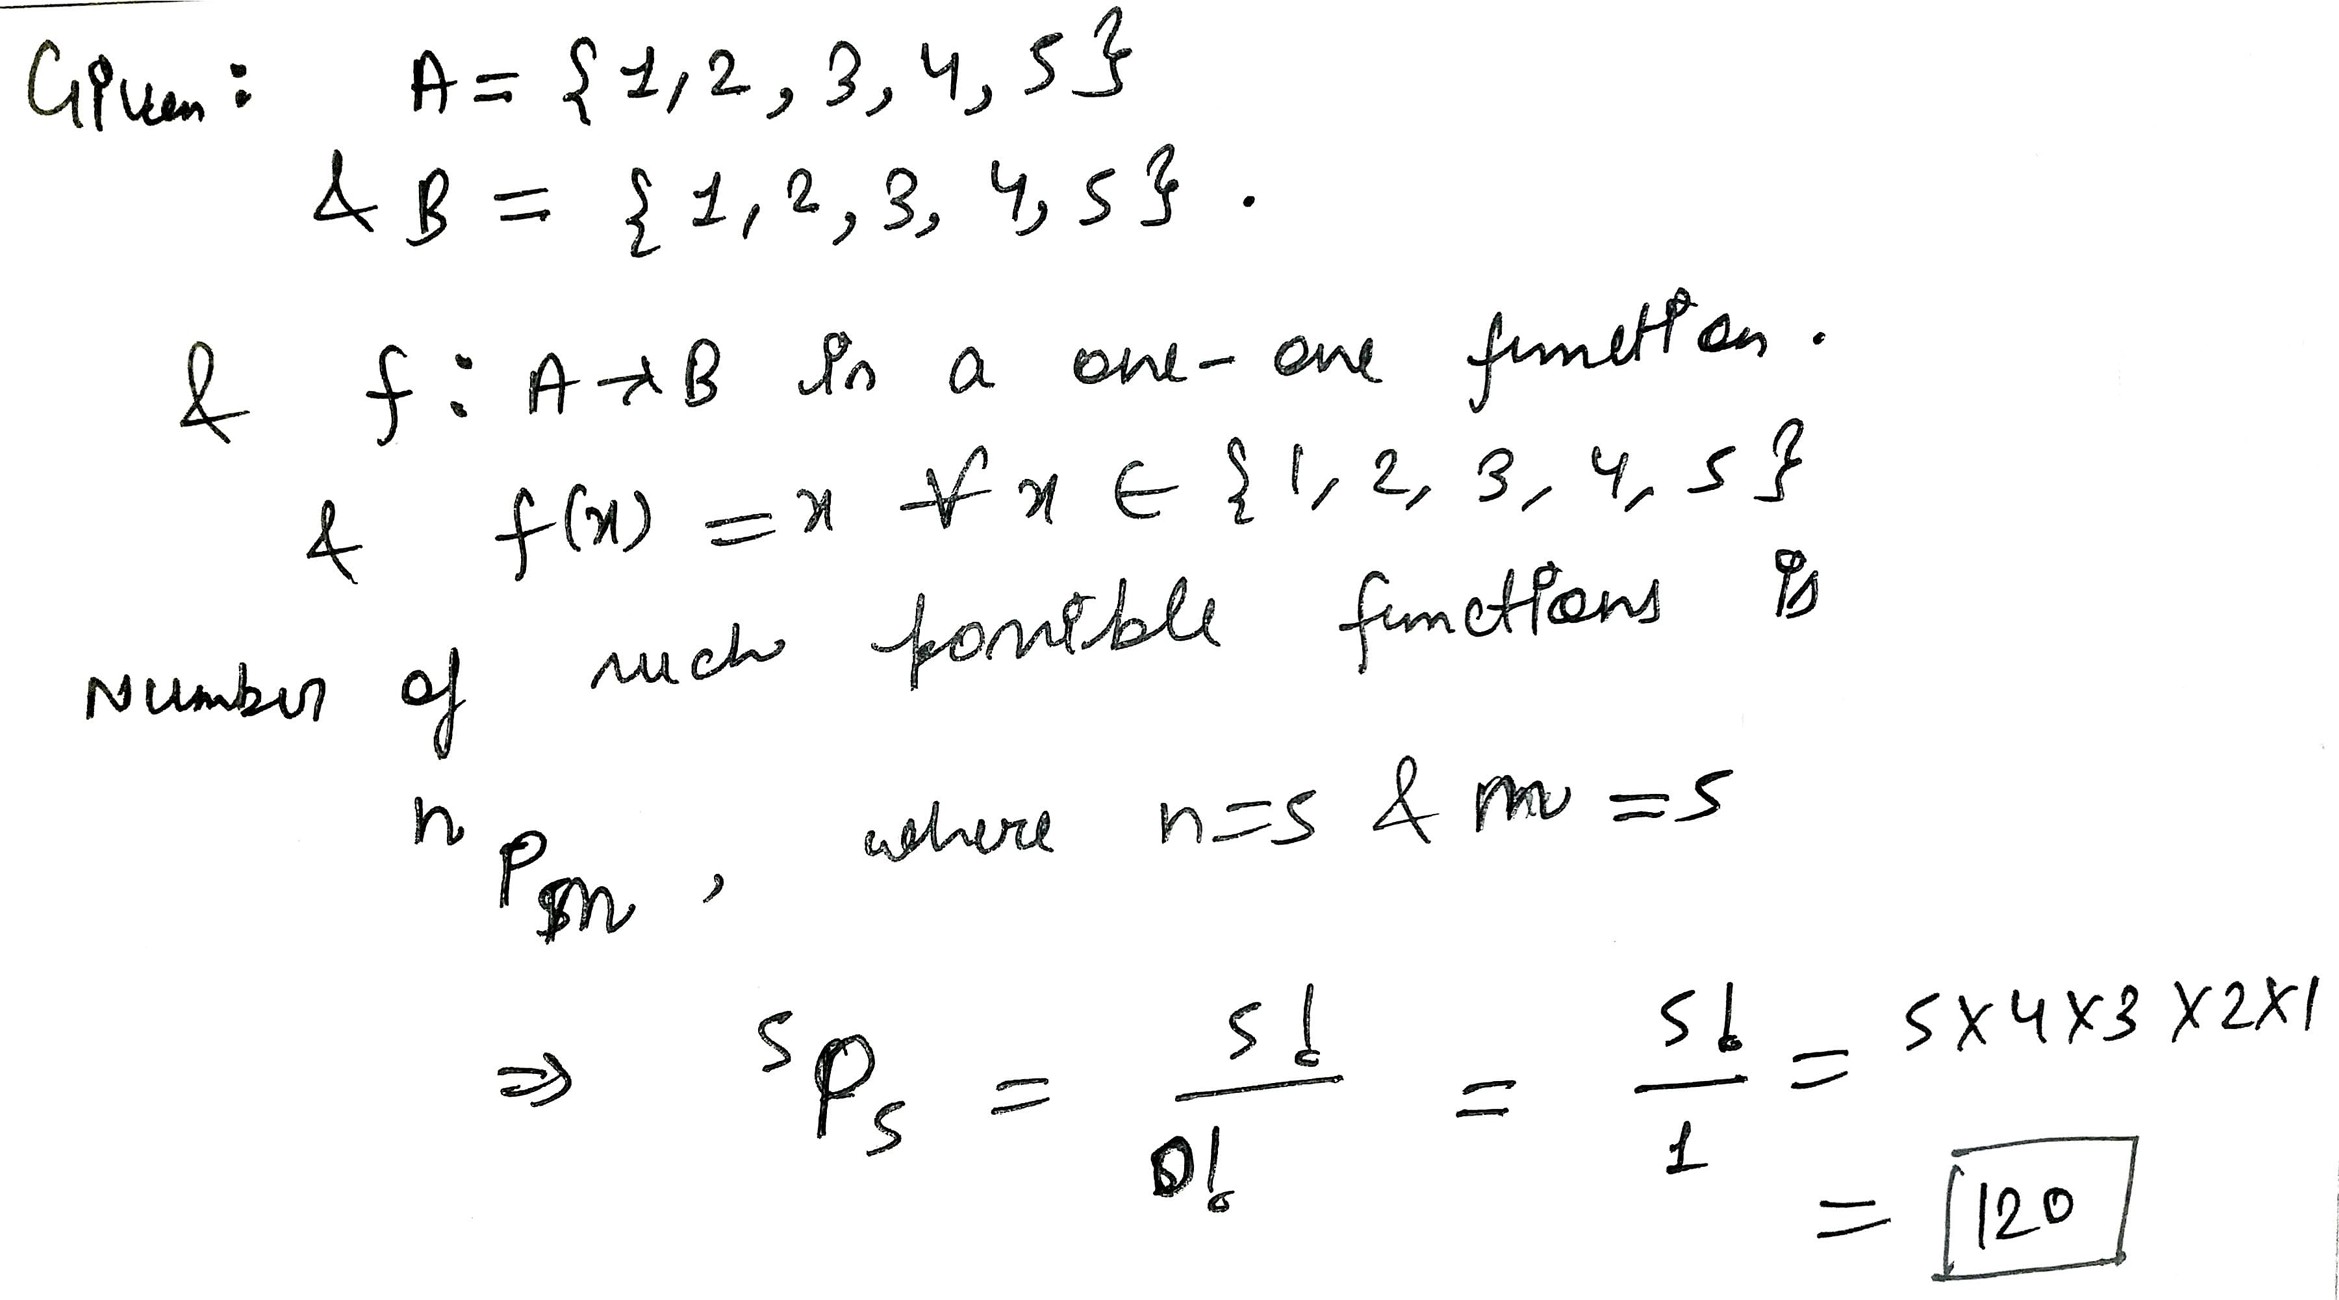 Given: A = {1,2,3,4,5}
& B = {1,2,3,4,5}.
& f: A→B is a one-one function.
& f(x) = x ∀ x ∈ {1,2,3,4,5}
Number of such possible functions is
ⁿPₘ, where n=5 & m=5
⇒ ⁵P₅ = 5!/0! = 5!/1 = 5X4X3X2X1
= 120